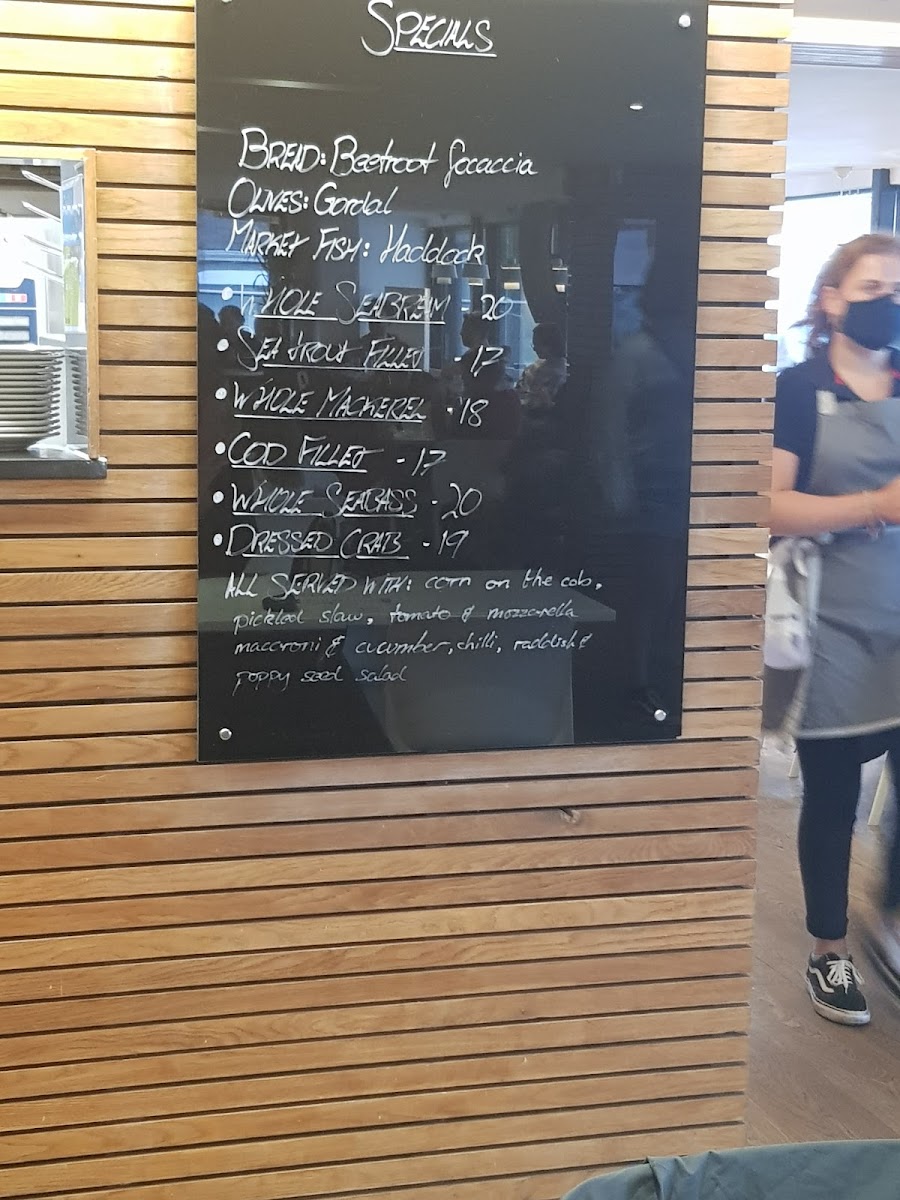 SPECIALS
BREAD: Beetroot Focaccia
OLIVES: Gordal
MARKET FISH: Haddock
• WHOLE SEABREAM - 20
• SEA TROUT FILLET - 17
• WHOLE MACKEREL - 18
• COD FILLET - 17
• WHOLE SEABASS - 20
• DRESSED CRAB - 19
ALL SERVED WITH: corn on the cob,
pickled slaw, tomato & mozzarella
maccroni & cucumber, chilli, raddish &
poppy seed salad